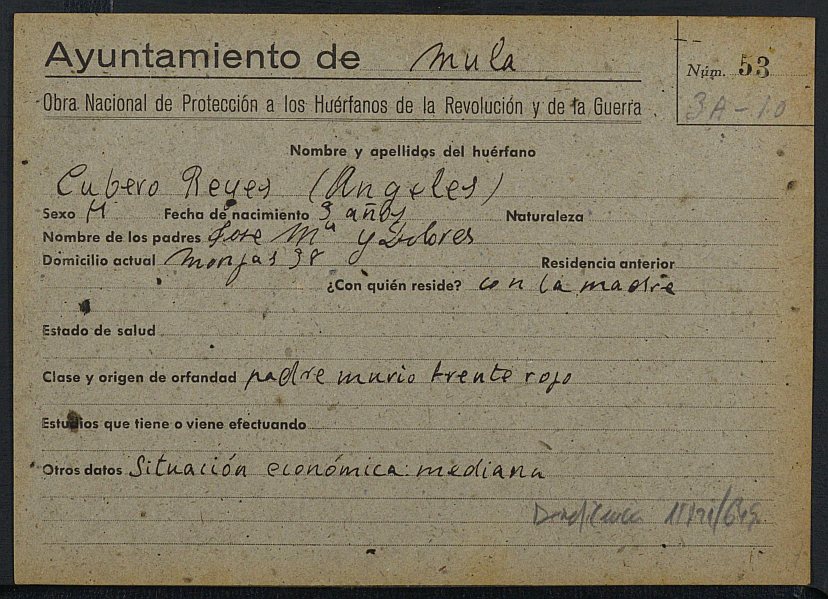 Ayuntamiento de Mula
Núm. 53
3A-10
Obra Nacional de Protección a los Huérfanos de la Revolución y de la Guerra
Nombre y apellidos del huérfano
Cubero Reyes (Angeles)
Sexo M Fecha de nacimiento 3 años Naturaleza
Nombre de los padres Jose Mª y Dolores
Domicilio actual Monjas 38 Residencia anterior
¿Con quién reside? con la madre
Estado de salud
Clase y origen de orfandad padre murio frente rojo
Estudios que tiene o viene efectuando
Otros datos Situación económica: mediana